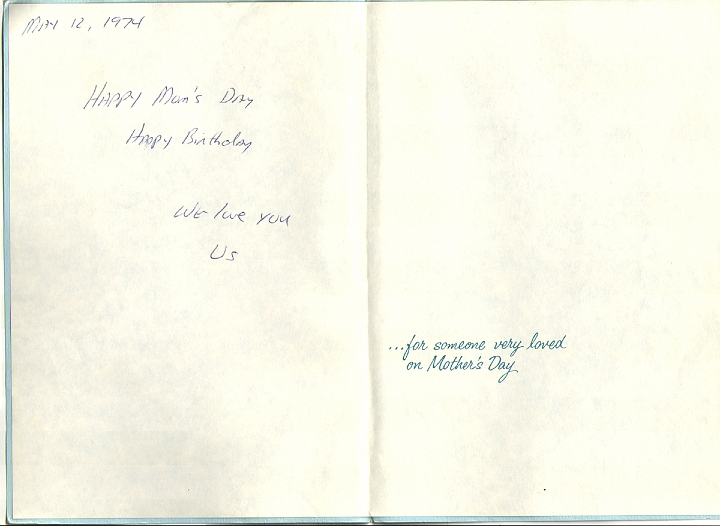 May 12, 1974
Happy Mom's Day
Happy Birthday
We love you
Us
...for someone very loved
on Mother's Day